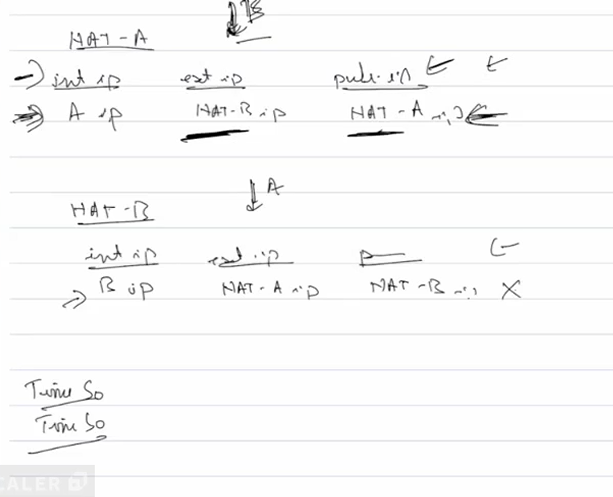 B
NAT-A
int ip ext ip pub. ip
A ip NAT-B ip NAT-A ip
A
NAT-B
int ip ext ip P
B ip NAT-A ip NAT-B ip X
Time 50
Time 50
CALER